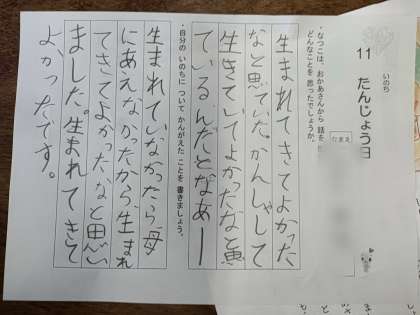 いのち
11 たんじょう日
・なつこは、おかあさんから 話を
どんなことを 思ったでしょうか。
なまえ
生まれてきてよかった
なと思ていた。かんしゃして
生きていてよかったなと思
ているんだとなあー
・自分の いのちに ついて かんがえた ことを 書きましょう。
生まれていなかったら、母
にあえなかったから、生まれ
てきてよかったなと思い
ました。生まれてきて
よかったです。